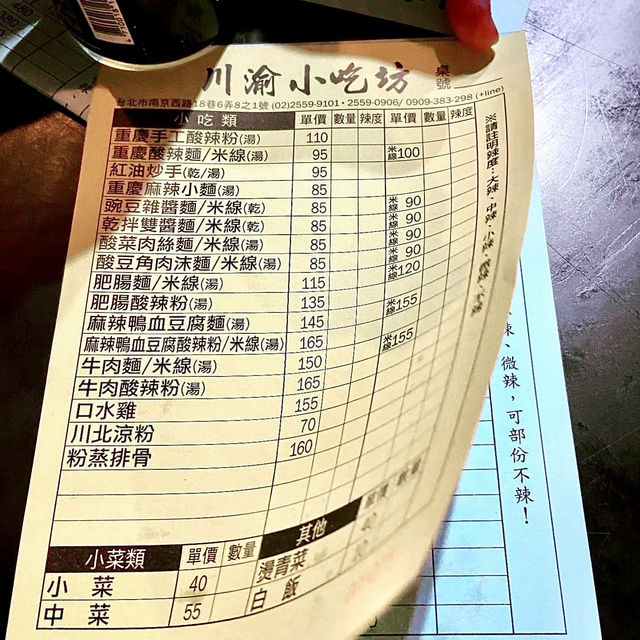 川渝小吃坊 桌號
台北市南京西路18巷6弄8之1號 (02)2559-9101・2559-0906/ 0909-383-298 (+line)
小吃類 單價 數量 辣度 單價 數量 辣度
重慶手工酸辣粉(湯) 110
重慶酸辣麵/米線(湯) 95 米線100
紅油炒手(乾/湯) 95
重慶麻辣小麵(湯) 85
豌豆雜醬麵/米線(乾) 85 米線 90
乾拌雙醬麵/米線(乾) 85 米線 90
酸菜肉絲麵/米線(湯) 85 米線 90
酸豆角肉沫麵/米線(湯) 85 米線 90
肥腸麵/米線(湯) 115 米線120
肥腸酸辣粉(湯) 135
麻辣鴨血豆腐麵(湯) 145 米線155
麻辣鴨血豆腐酸辣粉/米線(湯) 165
牛肉麵/米線(湯) 150 米線155
牛肉酸辣粉(湯) 165
口水雞 155
川北涼粉 70
粉蒸排骨 160
※請註明辣度：大辣、中辣、小辣、微辣、不辣
辣、微辣，可部份不辣！
小菜類 單價 數量 其他 單價 數量
小菜 40 燙青菜 40
中菜 55 白飯